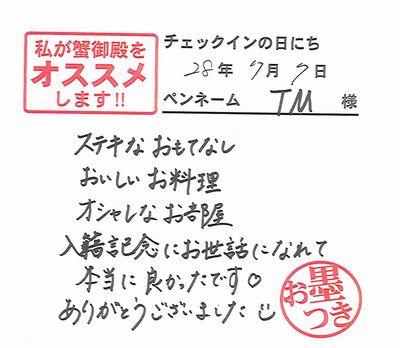 私が蟹御殿を
オススメ
します!!
チェックインの日にち
28年 7月 9日
ペンネーム TM 様
ステキな おもてなし
おいしい お料理
オシャレな お部屋
入籍記念にお世話になれて
本当に良かったです♡
ありがとうございました
お墨つき